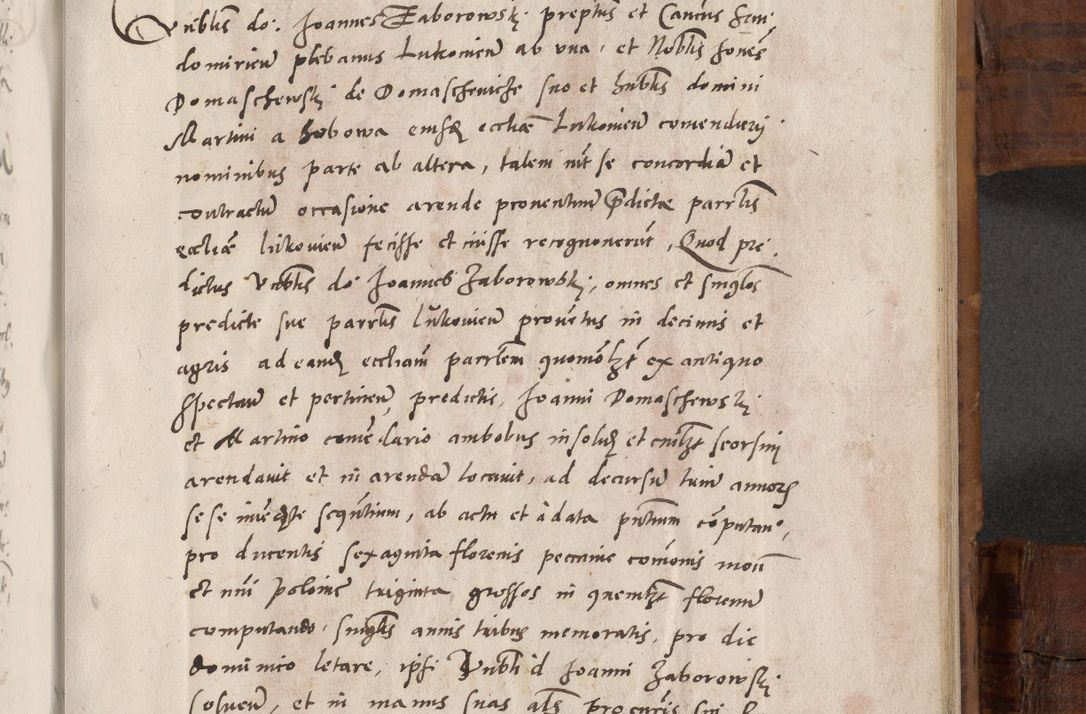 Vnblis do: Joannes Zaborowskj preptus et Cancus San:
domirien plebanus Lukovien ab vna, et Noblis Jones
Domaschewskj de Domaschewicze suo et hnblis domini
Martini a hobowa eiusd ecclie Lukovien comendarij
nominibus parte ab altera, talem int se concordia et
contractu occasione arende proventuum pdicte parrlis
ecclie lukovien fecisse et inisse recognoverut, Quod pre:
dictus Vnblis do Joannes Zaborowskj, omnes et singlos
predicte sue parrlis lukovien provetus in decimis et
agris ad eand eccliam parrlem quomolzt ex antiquo
spectan et pertinen, predictis Joanni Domaschewskj
et Martino comedario ambobus insolid et cuilzt seorsim
arendavit et in arenda locavit, ad decursu trium annor
sese imediate sequtium, ab actu et a data pntium coputan,
pro ducentis sexaginta florenis peccunie comonis mon
et nui Polonie triginta grossos in quemlzt florenum
computando singlis annis tribus memoratis, pro die
dominico letare, ipsi Vnbli d Joanni Zaborowskj
solvent, et in manus suas als procuris sui